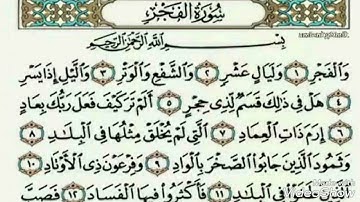 سُورَةُ الفَجْرِ
بِسْمِ اللَّهِ الرَّحْمَٰنِ الرَّحِيمِ
وَالْفَجْرِ ١ وَلَيَالٍ عَشْرٍ ٢ وَالشَّفْعِ وَالْوَتْرِ ٣ وَاللَّيْلِ إِذَا يَسْرِ
٤ هَلْ فِي ذَلِكَ قَسَمٌ لِذِي حِجْرٍ ٥ أَلَمْ تَرَ كَيْفَ فَعَلَ رَبُّكَ بِعَادٍ
٦ إِرَمَ ذَاتِ الْعِمَادِ ٧ الَّتِي لَمْ يُخْلَقْ مِثْلُهَا فِي الْبِلَادِ ٨
وَثَمُودَ الَّذِينَ جَابُوا الصَّخْرَ بِالْوَادِ ٩ وَفِرْعَوْنَ ذِي الْأَوْتَادِ ١٠
فِي الْبِلَادِ ١١ فَأَكْثَرُوا فِيهَا الْفَسَادَ ١٢ فَصَبَّ